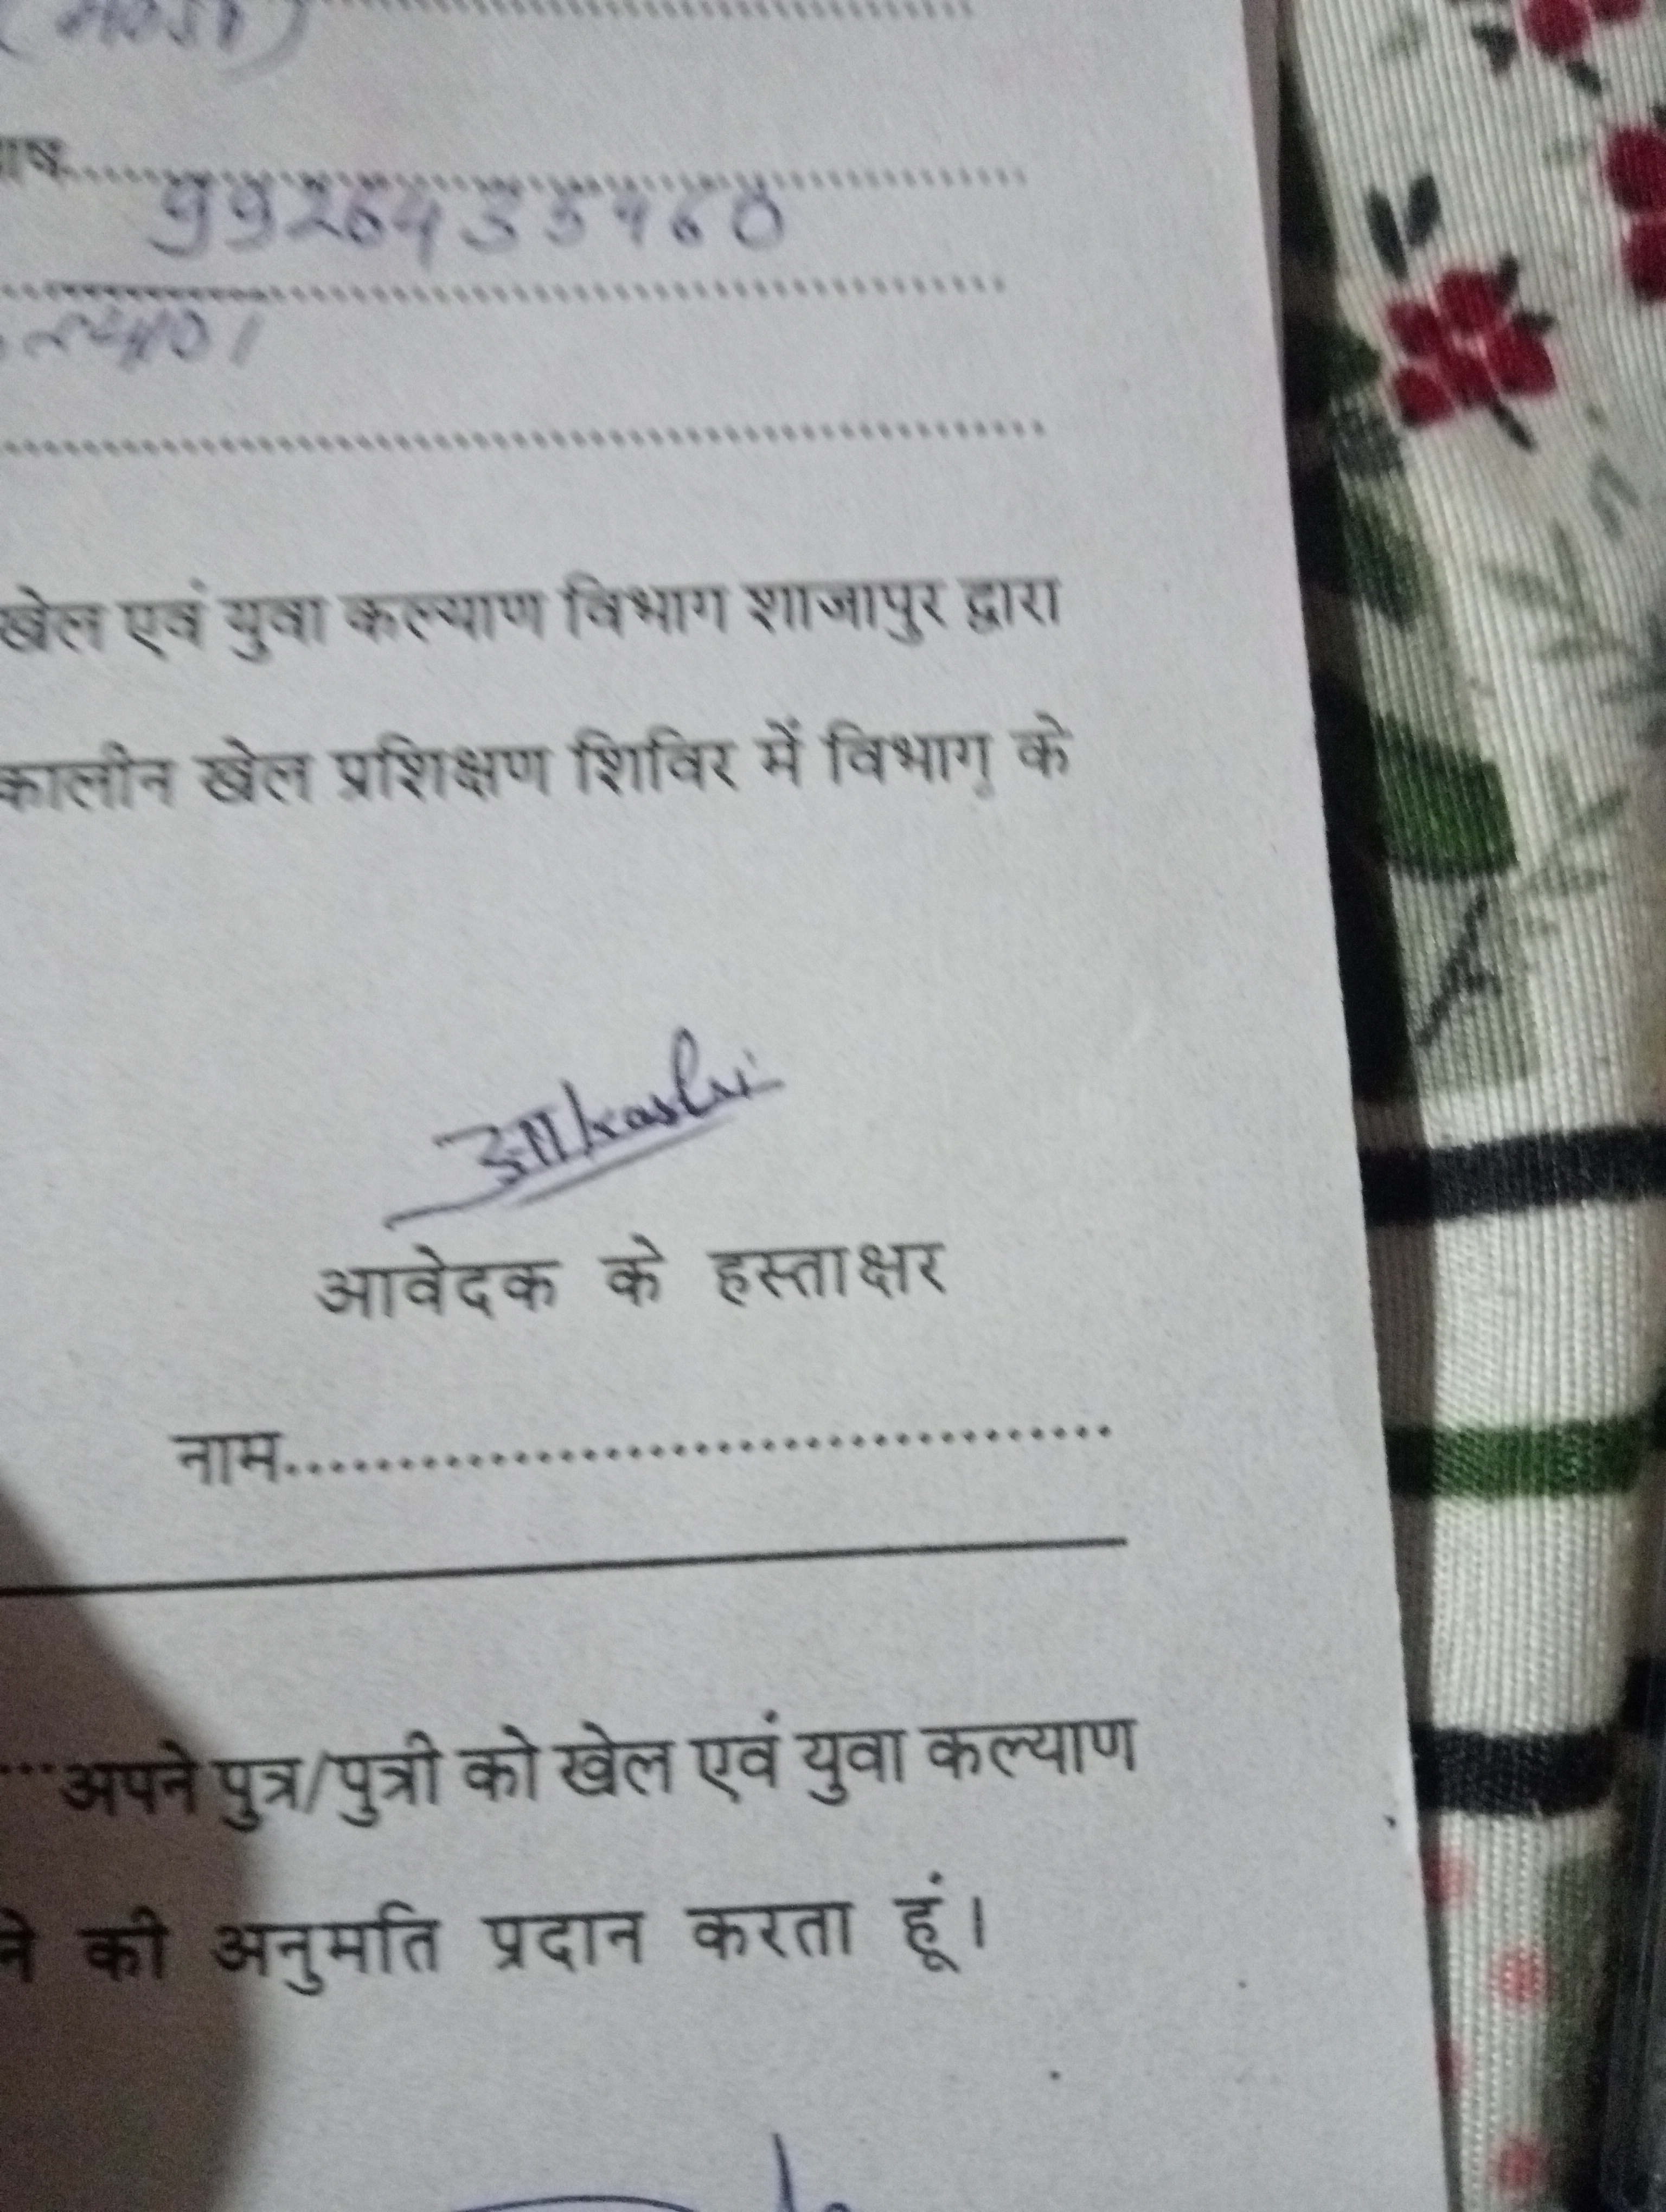 9926435460
खेल एवं युवा कल्याण विभाग शाजापुर द्वारा
कालीन खेल प्रशिक्षण शिविर में विभाग के
आवेदक के हस्ताक्षर
नाम
अपने पुत्र/पुत्री को खेल एवं युवा कल्याण
ने की अनुमति प्रदान करता हूं।